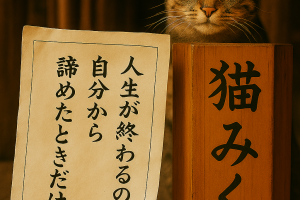 人生が終わるの
自分から
諦めたときだけ
猫みく